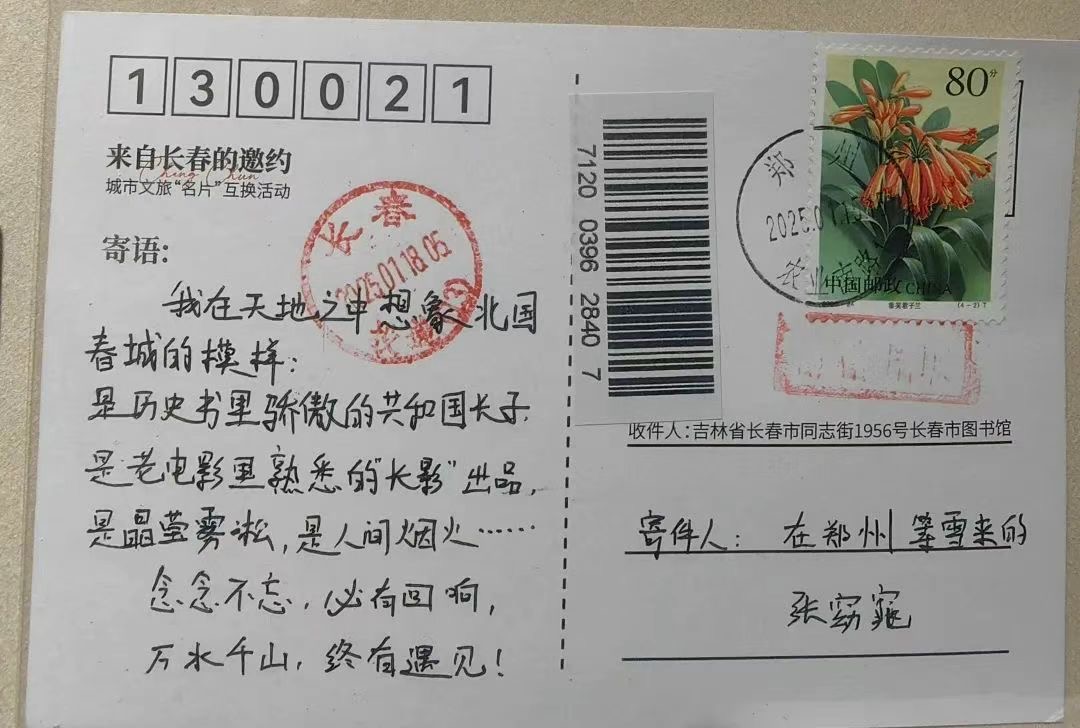 130021
来自长春的邀约
Chang Chun
城市文旅“名片”互换活动
寄语:
我在天地之中想象北国
春城的模样:
是历史书里骄傲的共和国长子
是老电影里熟悉的“长影”出品,
是晶莹雾凇,是人间烟火……
念念不忘,必有回响,
万水千山,终有遇见!
长春
2025.01.18.05
7120 0396 2840 7
80分
郑州
2025.01.1
农业南路
中国邮政 CHINA
垂笑君子兰
(4-2)T
收件人:吉林省长春市同志街1956号长春市图书馆
寄件人: 在郑州等雪来的
张窈窕